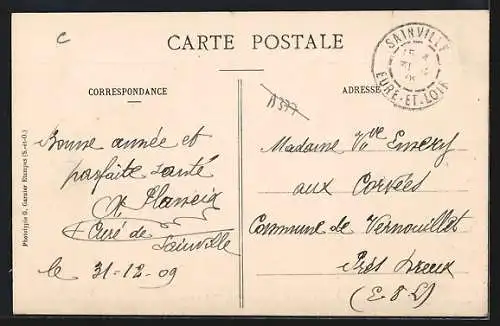 C
CARTE POSTALE
SAINVILLE
EURE-ET-LOIR
CORRESPONDANCE
ADRESSE
Phototypie G. Garnier Etampes (S.-et-O.)
Bonne année et
parfaite santé
Curé de
Sainville
le 31-12-09
Madame Vve Emery
aux Corvées
Commune de Vernouillet
Près Dreux
(E & L)